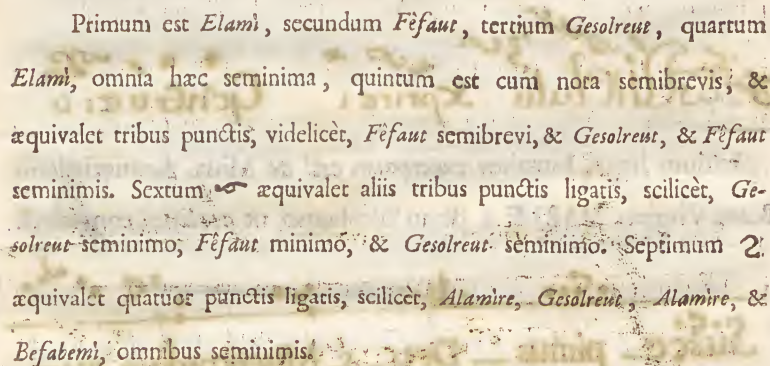 Primum est Elamì, secundum Fêfaut, tertium Gesolreut, quartum
Elamì, omnia hæc seminima, quintum est cum nota semibrevis, &
æquivalet tribus punctis, videlicèt, Fêfaut semibrevi, & Gesolreut, & Fêfaut
seminimis. Sextum æquivalet aliis tribus punctis ligatis, scilicèt, Ge-
solreut seminimo, Fêfaut minimo, & Gesolreut seminimo. Septimum 2
æquivalet quatuor punctis ligatis, scilicèt, Alamìre, Gesolreut, Alamìre, &
Befabemì, omnibus seminimis.